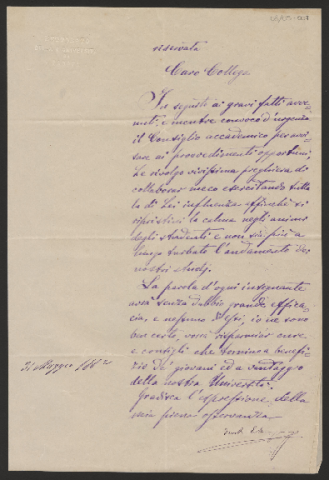 riservata
Caro Collega
In seguito ai gravi fatti avve-
nuti, e mentre convoco d'urgenza
il Consiglio accademico per avvi-
sare ai provvedimenti opportuni,
Le rivolgo vivissima preghiera di
collaborar meco esercitando tutta
la di Lei influenza affinché si
ripristini la calma negli animi
degli studenti e non sia più a
lungo turbato l'andamento dei
nostri studj.
La parola d'ogni insegnante
avrà senza dubbio grande effica-
cia, e nessuno di essi, io ne sono
ben certo, vorrà risparmiar cure
e consigli che tornino a benefi-
zio de' giovani ed a vantaggio
della nostra Università.
Gradisca l'espressione della
mia piena osservanza
31 Maggio